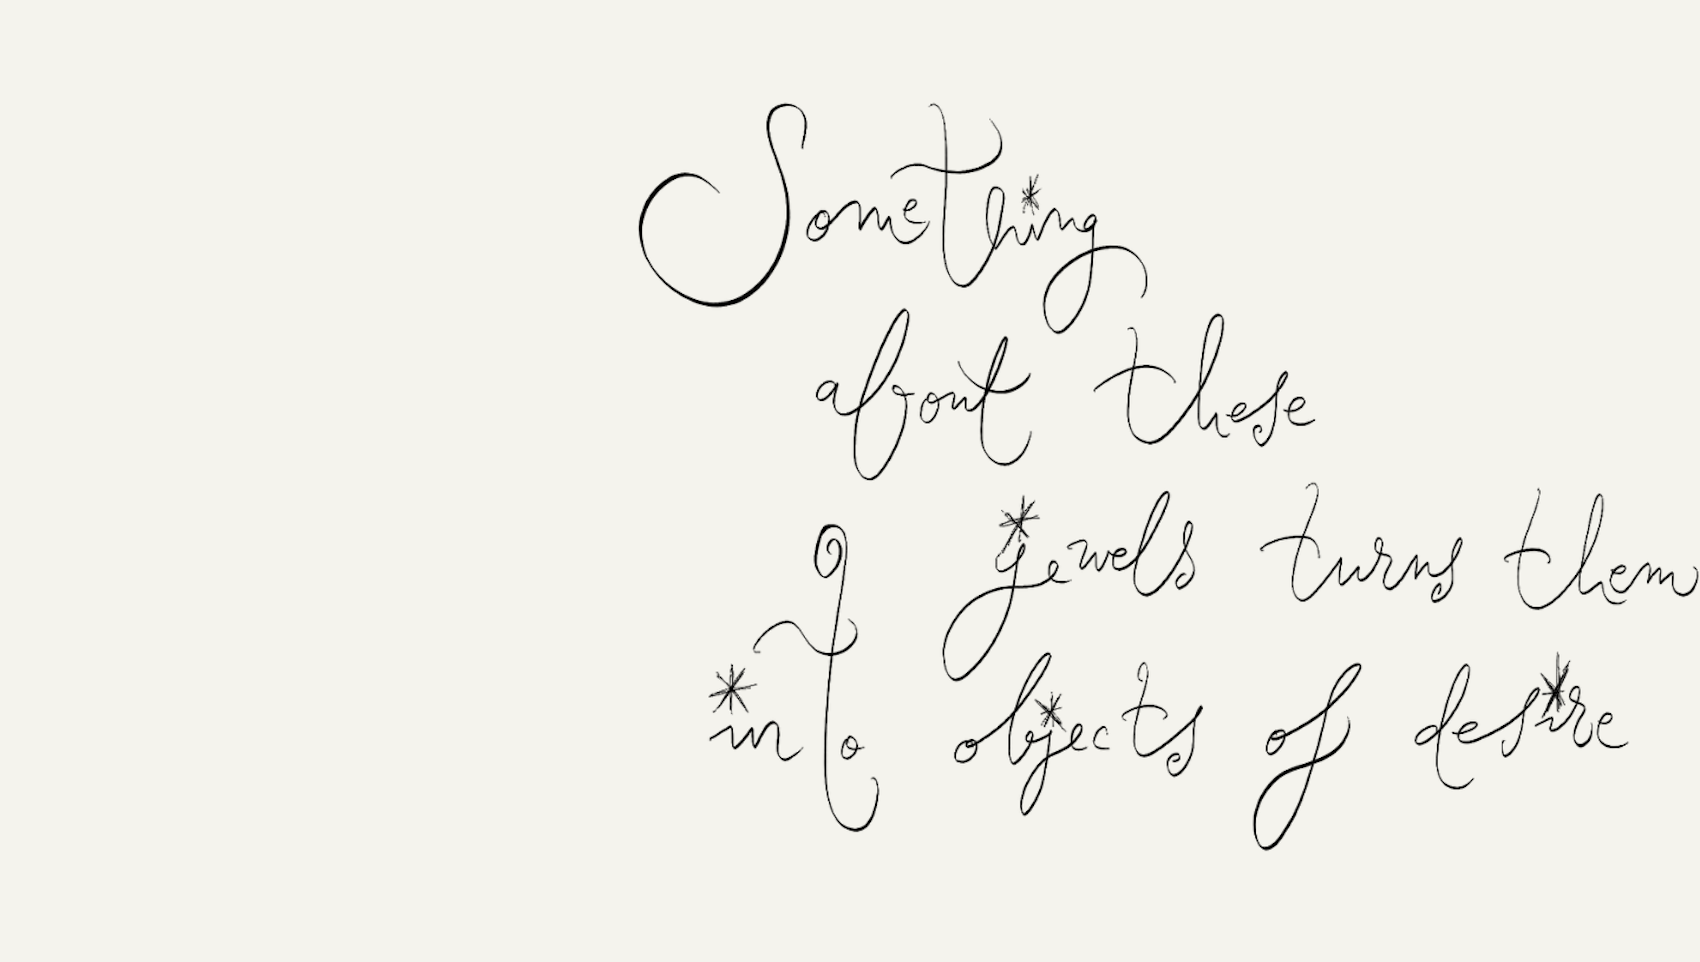 Something
about these
jewels turns them
into objects of desire